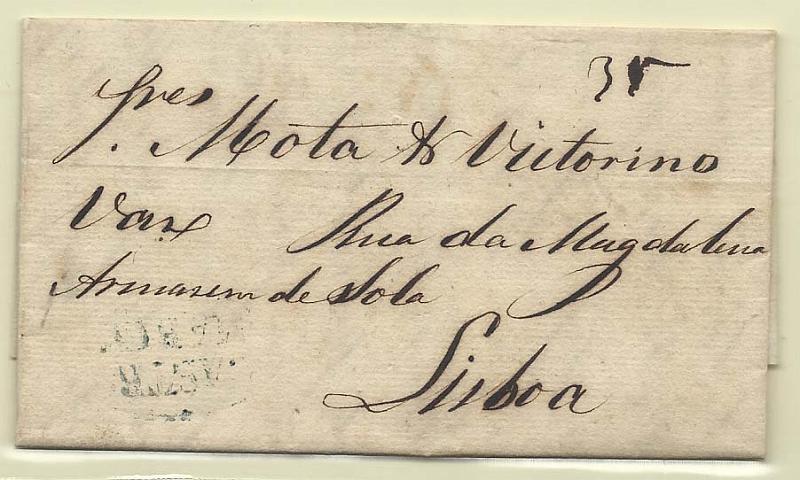 35
Sres Mota & Victorino
Rua da Magdalena
Armasem de Sola
Lisboa